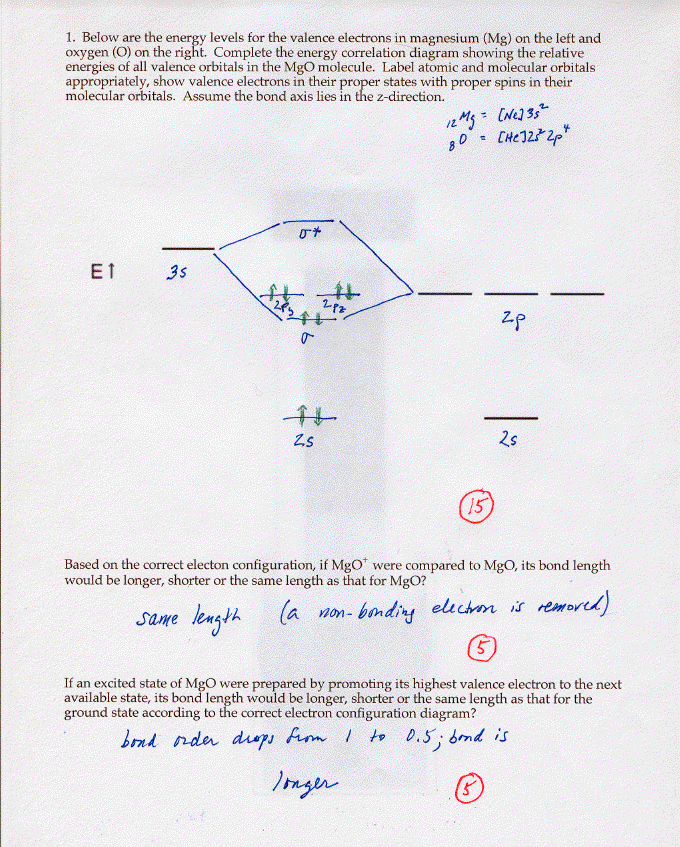 1. Below are the energy levels for the valence electrons in magnesium (Mg) on the left and
oxygen (O) on the right. Complete the energy correlation diagram showing the relative
energies of all valence orbitals in the MgO molecule. Label atomic and molecular orbitals
appropriately, show valence electrons in their proper states with proper spins in their
molecular orbitals. Assume the bond axis lies in the z-direction.
₁₂Mg = [Ne]3s²
₈O = [He]2s²2p⁴
σ*
E↑
3s
2py 2pz
2p
σ
2s
2s
15
Based on the correct electon configuration, if MgO⁺ were compared to MgO, its bond length
would be longer, shorter or the same length as that for MgO?
same length (a non-bonding electron is removed)
5
If an excited state of MgO were prepared by promoting its highest valence electron to the next
available state, its bond length would be longer, shorter or the same length as that for the
ground state according to the correct electron configuration diagram?
bond order drops from 1 to 0.5; bond is
longer
5